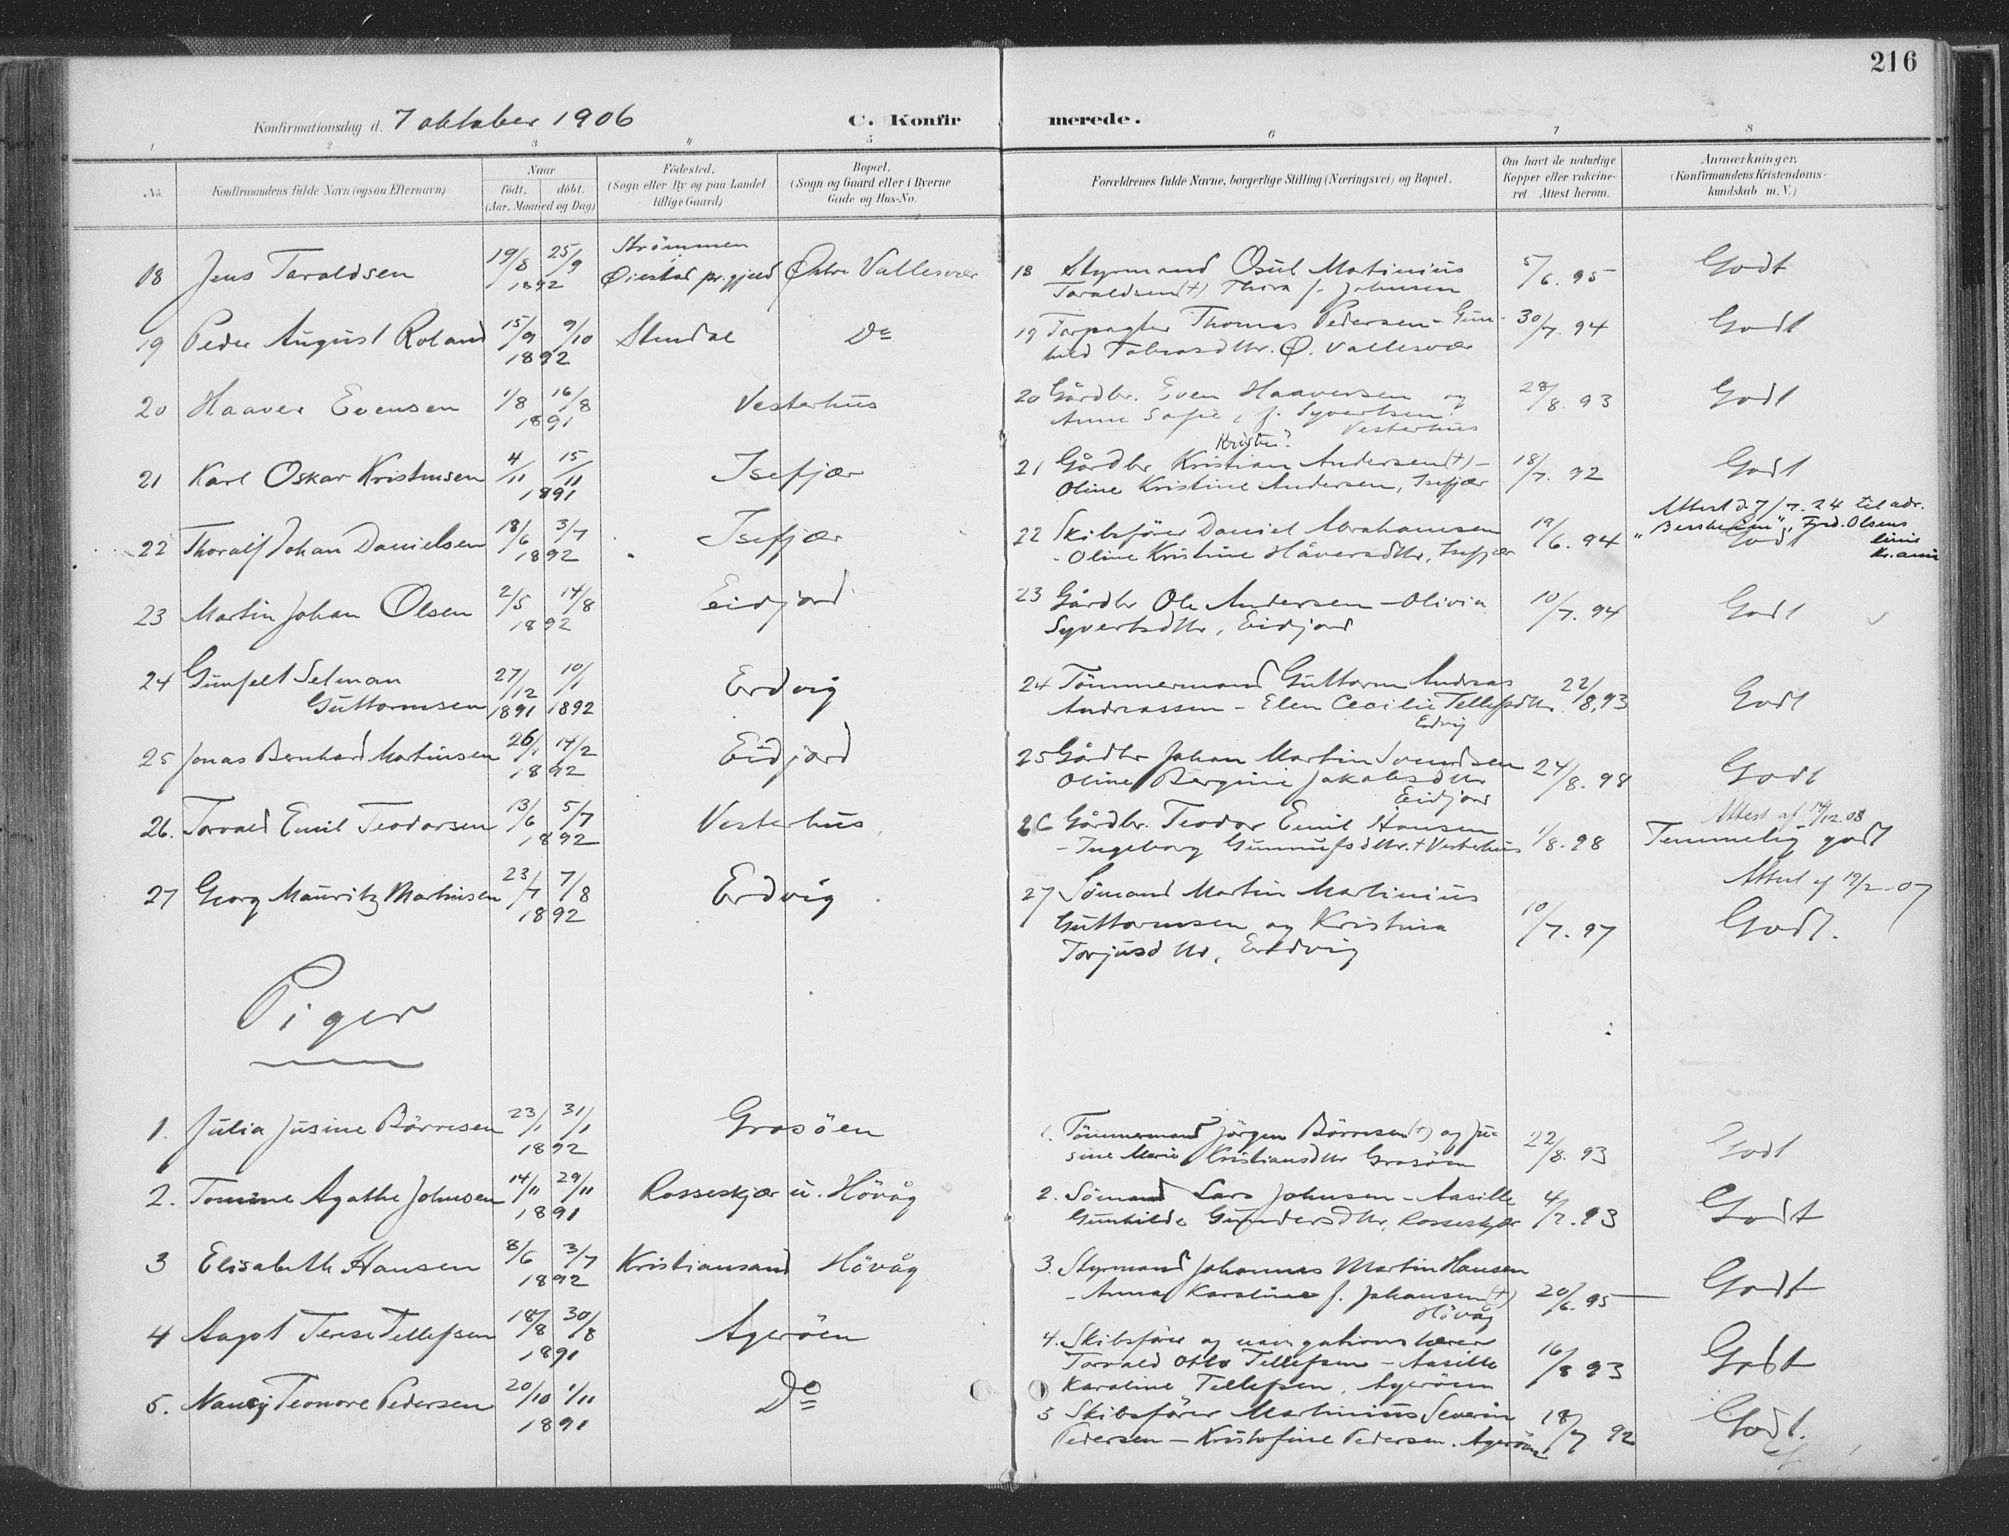 216
Konfirmationsdag d. 7 oktober 1906 C. Konfirmerede.
1 2 3 4 5 6 7 8
No. Konfirmandens fulde Navn (ogsaa Efternavn) Naar født. døbt. (Aar, Maaned og Dag) Fødested. (Sogn eller By og paa Landet tillige Gaard) Bopæl. (Sogn og Gaard eller i Byerne Gade og Hus-No. Forældrenes fulde Navne, borgerlige Stilling (Næringsvei) og Bopæl. Om havt de naturlige Kopper eller vakcineret. Attest herom. Anmærkninger. (Konfirmandens Kristendomskundskab m. V.)
18 Jens Taraldsen 19/8 25/9 1892 Strømmen Øiestad pr.gjeld Østre Vallesvær 18 Styrmand Osul Martinius
Taraldsen (+) Thora f. Johnsen 5/6. 95 Godt
19 Peder August Roland 15/9 9/10 1892 Stendal Do 19 Forpagter Thomas Pedersen - Gun-
hild Tobiasdttr. Ø. Vallesvær 30/7. 94 Godt
20 Haaver Evensen 1/8 16/8 1891 Vesterhus 20 Gårdbr. Even Haaversen og
Anne Sofie, f. Syvertsen
Vesterhus 28/8. 93 Godt
21 Karl Oskar Kristensen 4/11 15/11 1891 Isefjær Kristen?
21 Gårdbr Kristian Andersen (+) -
Oline Kristine Andersen, Isefjær 18/7. 92 Godt
22 Thoralf Johan Danielsen 18/6 3/7 1892 Isefjær 22 Skibsfører Daniel Abrahamsen
- Oline Kristine Håversdttr, Isefjær 19/6. 94 Godt
Attest d. 7/7. 24 til adr.
"Bessheim", Fred. Olsens
linie
Kr.ania
23 Martin Johan Olsen 2/5 14/8 1892 Eidjord 23 Gårdbr Ole Andersen - Olivia
Syvertsdttr, Eidjord 10/7. 94 Godt
24 Gunfelt Selman
Guttormsen 27/12 1891 10/1 1892 Erdvig 24 Tømmermand Guttorm Andreas
Andreassen - Elen Cecilie Tellefsdttr.
Edvig 22/8. 93 Godt
25 Jonas Bernhard Martinsen 26/1 14/2 1892 Eidjord 25 Gårdbr Johan Martin Svendsen
Oline Bergine Jakobsdttr
Eidjord 24/8. 98 Godt
26. Torvald Emil Teodorsen 13/6 5/7 1892 Vesterhus 26 Gårdbr. Teodor Emil Hansen
- Ingeborg Gunnufsdttr. + Vesterhus 1/8. 98 Attest af 14/12.08
Temmelig godt
27 Georg Mauritz Martinsen 23/7 7/8 1892 Erdvig 27 Sømand Martin Martinius
Guttormsen og Kristina
Torjusdttr, Erdvig 10/7. 97 Attest af 19/2-07
Godt.
Piger
1. Julia Jusine Børresen 23/1 31/1 1892 Grosøen 1. Tømmermand Jørgen Børresen (+) og Ju-
sine Marie Kristiansdttr Grosøen 22/8. 93 Godt
2. Tomine Agathe Johnsen 14/11 29/11 1891 Rosseskjær u. Høvåg 2. Sømand Lars Johnsen - Aasille
Gunhilde Gundersdttr, Rosseskjær 4/7. 93 Godt
3 Elisabeth Hansen 8/6 3/7 1892 Kristiansand Høvåg 3. Styrmand Johannes Martin Hansen
- Anna Karoline f. Johansen (+)
Høvåg 20/6. 95 Godt
4 Aagot Terese Tellefsen 18/8 30/8 1891 Agerøen 4. Skibsfører og navigationslærer
Torvald Otto Tellefsen - Aasille
Karoline Tellefsen, Agerøen 16/8 93 Godt
5. Nancy Teonore Pedersen 20/10 1/11 1891 Do 5 Skibsfører Martinius Severin
Pedersen - Kristofine Pedersen. Agerøen 18/7 92 Godt.